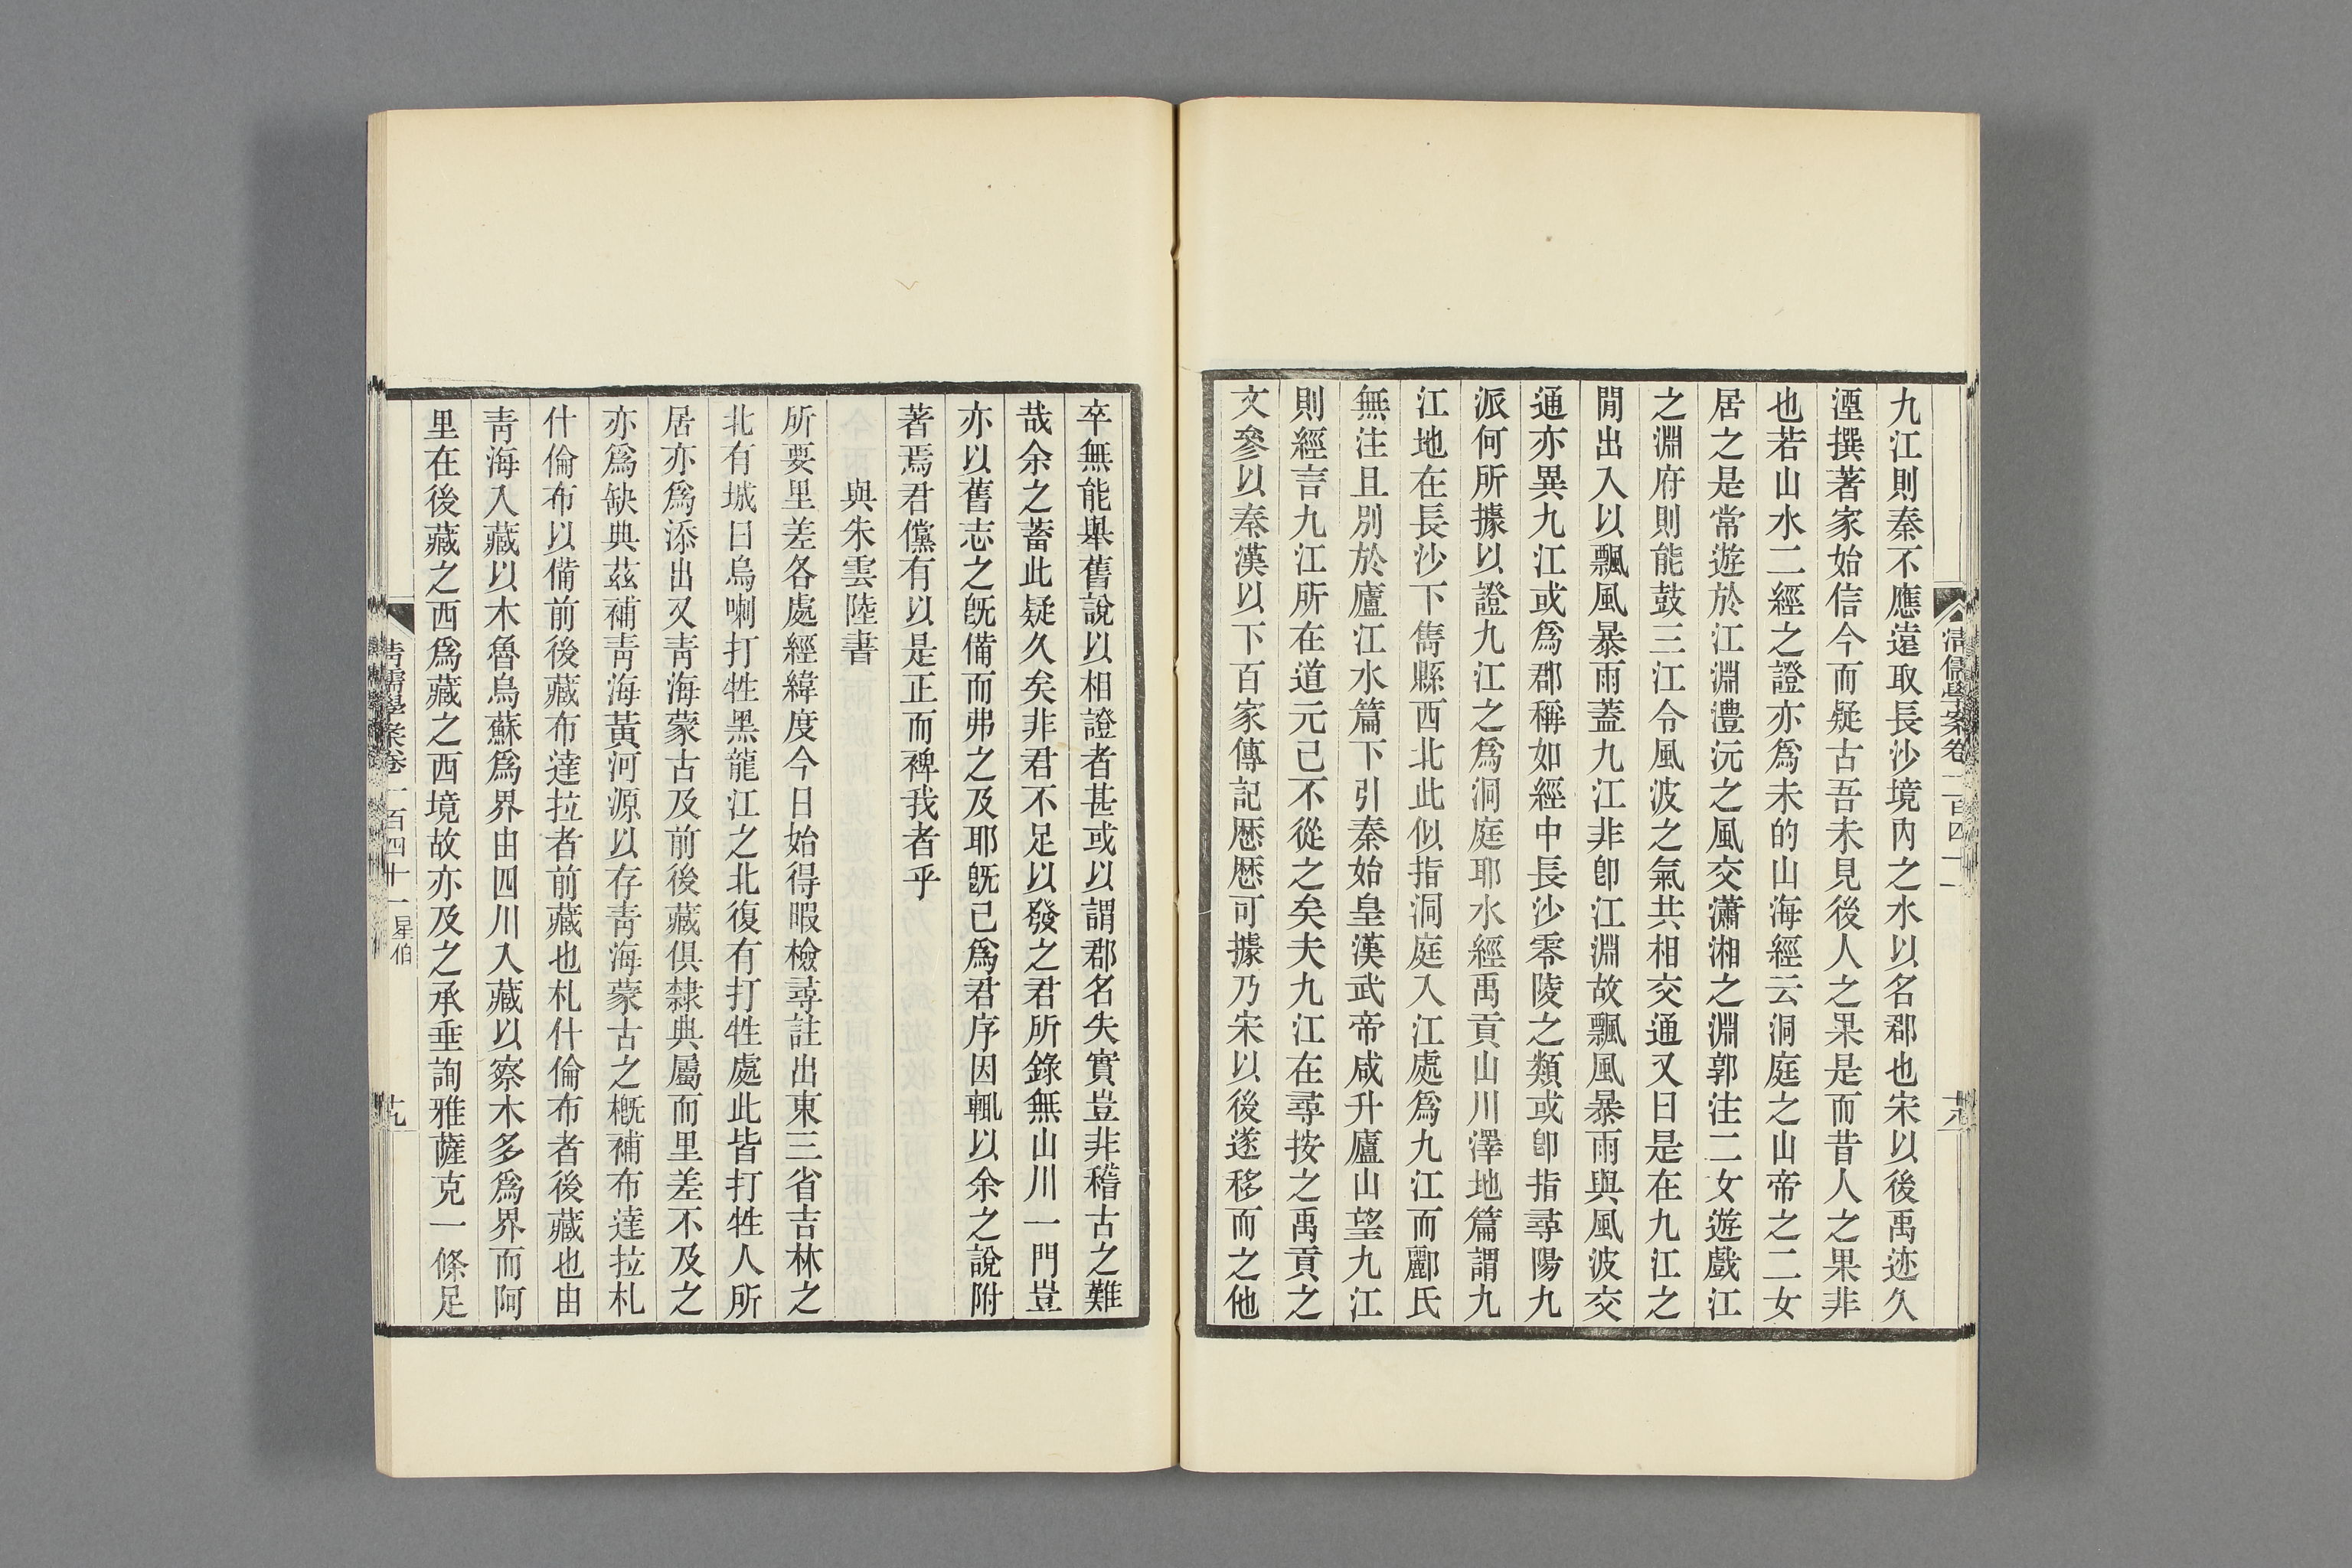 九江則秦不應遠取長沙境內之水以名郡也宋以後禹迹久
湮撰著家始信今而疑古吾未見後人之果是而昔人之果非
也若山水二經之證亦爲未的山海經云洞庭之山帝之二女
居之是常遊於江淵澧沅之風交瀟湘之淵郭注二女遊戲江
之淵府則能鼓三江令風波之氣共相交通又曰是在九江之
閒出入以飄風暴雨蓋九江非卽江淵故飄風暴雨與風波交
通亦異九江或爲郡稱如經中長沙零陵之類或卽指尋陽九
派何所據以證九江之爲洞庭耶水經禹貢山川澤地篇謂九
江地在長沙下雋縣西北此似指洞庭入江處爲九江而酈氏
無注且別於廬江水篇下引秦始皇漢武帝咸升廬山望九江
則經言九江所在道元已不從之矣夫九江在尋按之禹貢之
文參以秦漢以下百家傳記歷歷可據乃宋以後遂移而之他
清儒學案卷一百四十一
十八
卒無能舉舊說以相證者甚或以謂郡名失實豈非稽古之難
哉余之蓄此疑久矣非君不足以發之君所錄無山川一門豈
亦以舊志之旣備而弗之及耶旣已爲君序因輒以余之說附
著焉君儻有以是正而裨我者乎
與朱雲陸書
所要里差各處經緯度今日始得暇檢尋註出東三省吉林之
北有城曰烏喇打牲黑龍江之北復有打牲處此皆打牲人所
居亦爲添出又青海蒙古及前後藏俱隸典屬而里差不及之
亦爲缺典茲補青海黃河源以存青海蒙古之槪補布達拉札
什倫布以備前後藏布達拉者前藏也札什倫布者後藏也由
青海入藏以木魯烏蘇爲界由四川入藏以察木多爲界而阿
里在後藏之西爲藏之西境故亦及之承垂詢雅薩克一條足
清儒學案卷一百四十一 星伯
十九